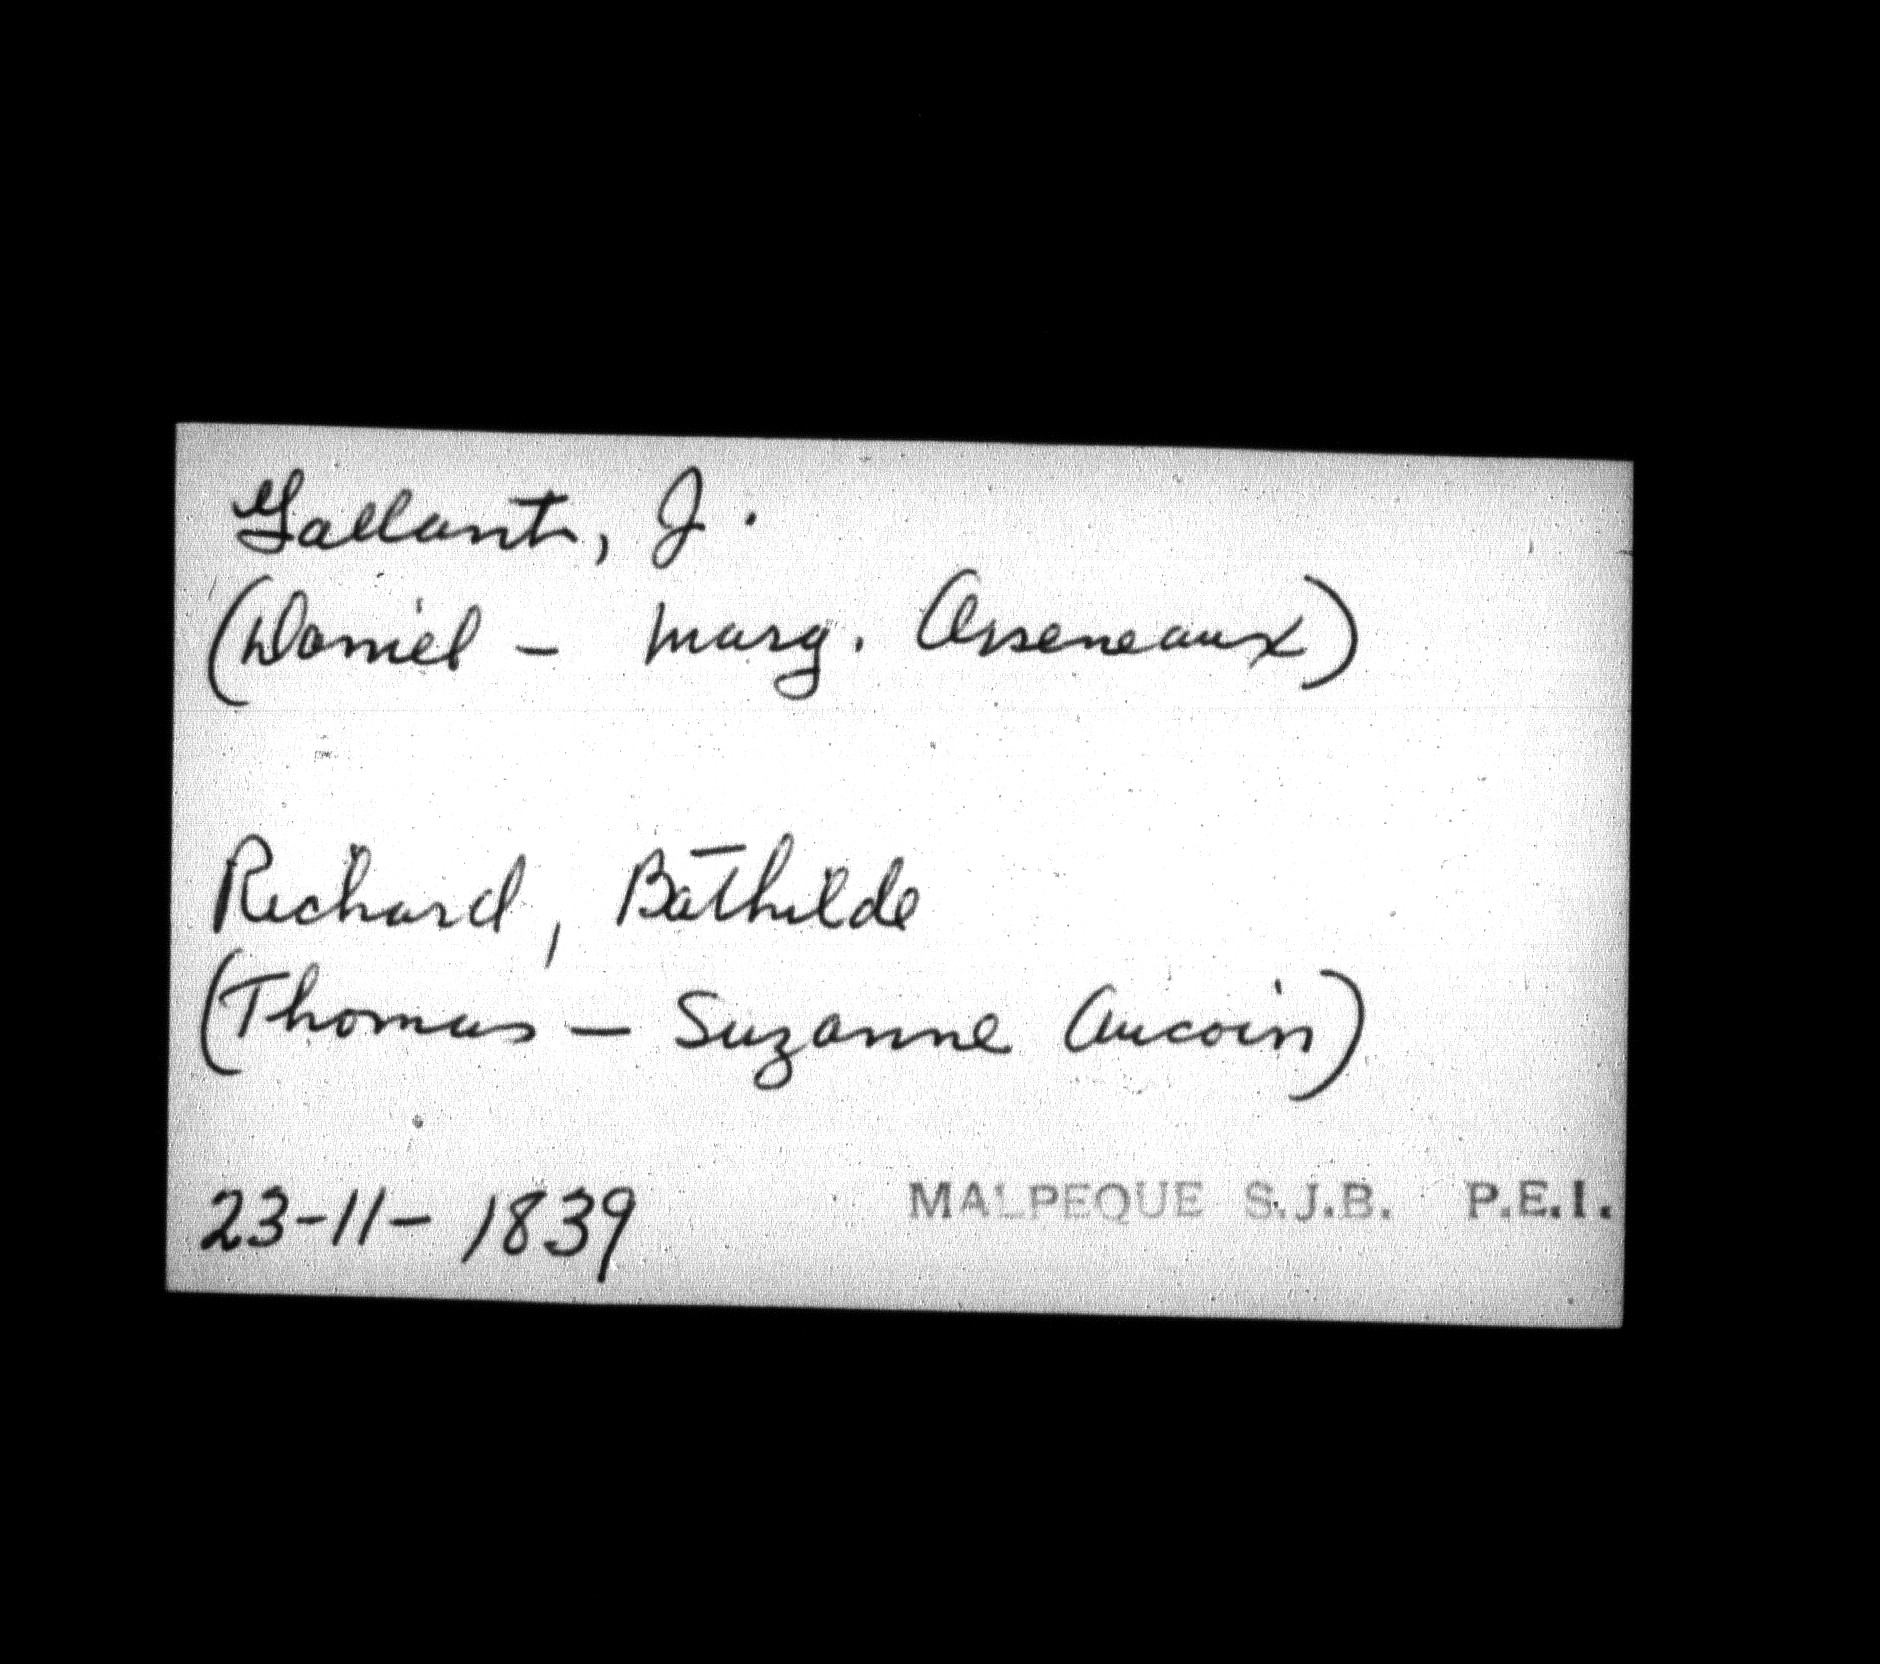 Gallant, J.
(Daniel - Marg. Arseneaux)
Richard, Bathilde
(Thomas - Suzanne Aucoin)
23-11-1839 MALPEQUE S.J.B. P.E.I.